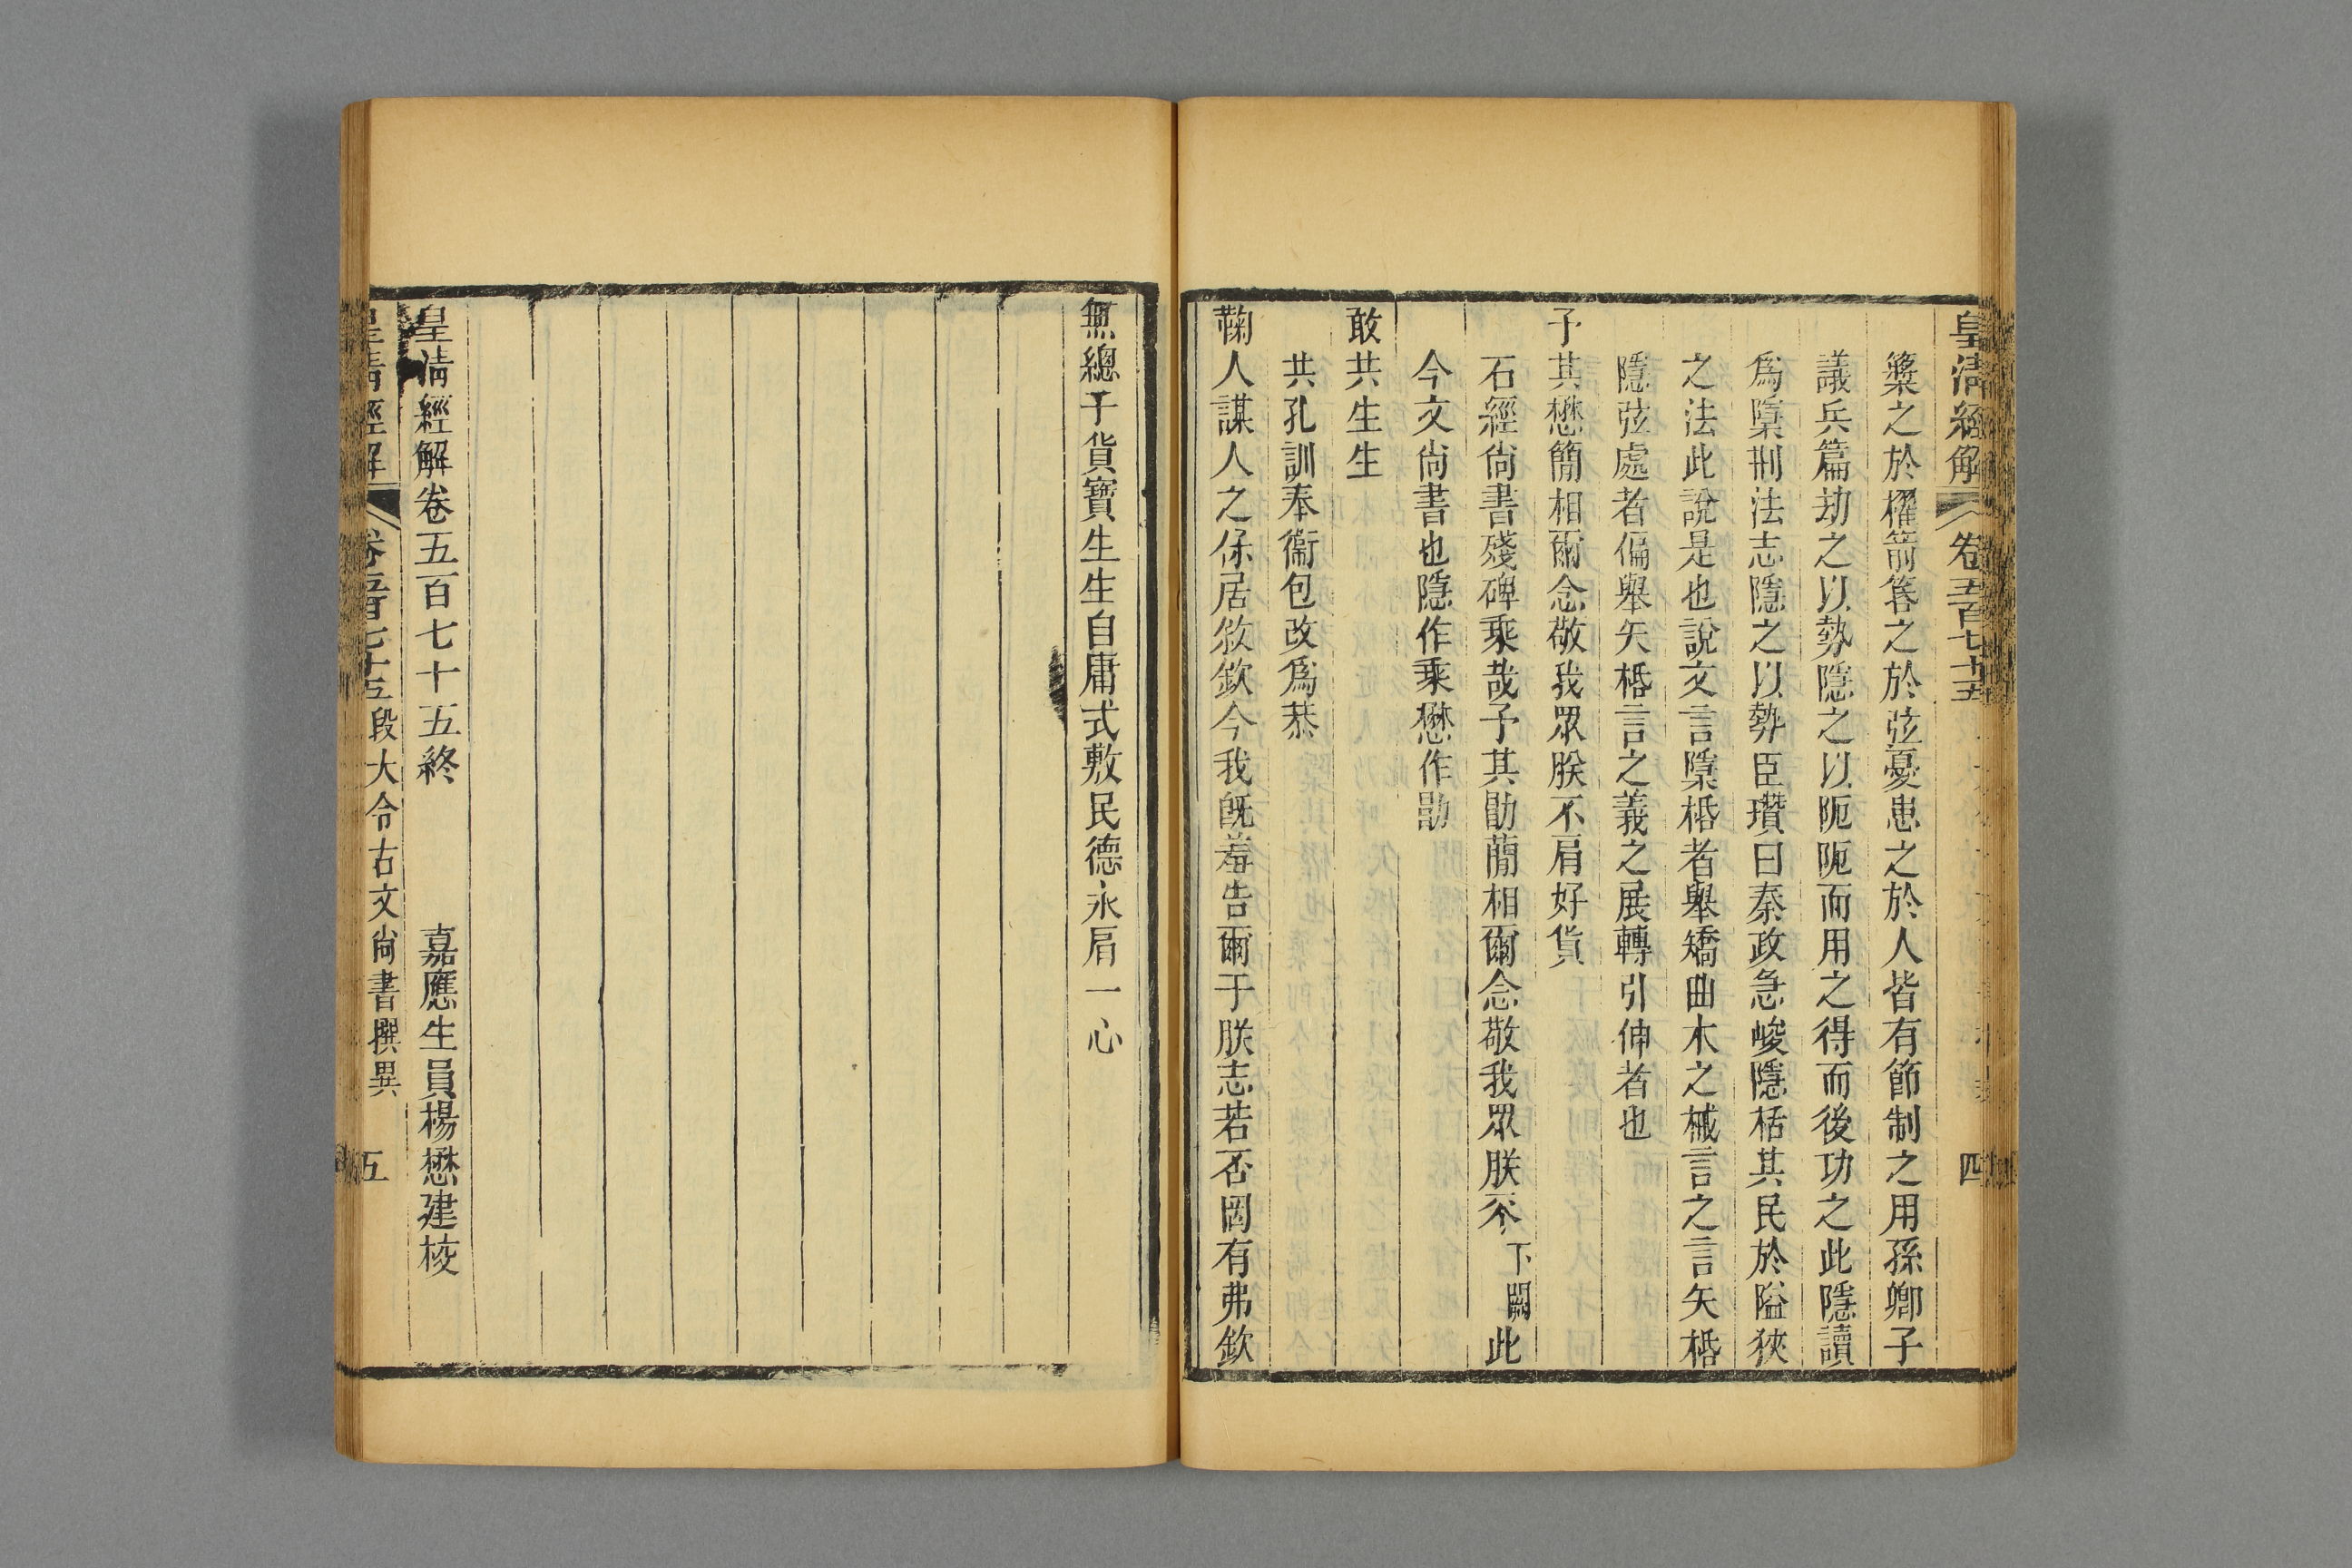 皇清經解 卷五百七十五 四
檃之於櫂箭笿之於弦憂患之於人皆有節制之用孫卿子
議兵篇劫之以勢隱之以阨阨而用之得而後功之此隱讀
爲檃刑法志隱之以埶臣瓚曰秦政急峻隱栝其民於隘狹
之法此說是也說文言檃桰者舉矯曲木之械言之言矢桰
隱弦處者偏舉矢桰言之義之展轉引伸者也
予其懋簡相爾念敬我眾朕不肩好貨
石經尙書殘碑乘哉予其勖蕳相爾念敬我眾朕不下闕此
今文尙書也隱作乘懋作勖
敢共生生
共孔訓奉衞包改爲恭
鞠人謀人之保居敘欽今我旣羞告爾于朕志若否罔有弗欽
無總于貨寶生生自庸式敷民德永肩一心
皇清經解卷五百七十五終 嘉應生員楊懋建校
皇清經解 卷五百七十五 段大令古文尙書撰異 五